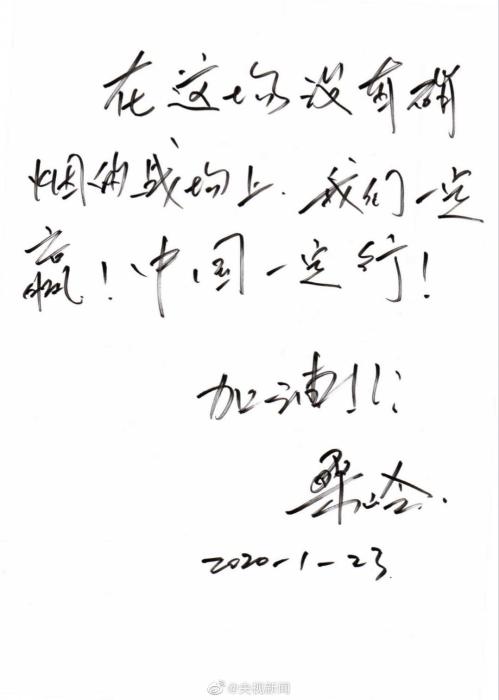 在这场没有硝
烟的战场上.我们一定
赢!中国一定行!
加油!!!
桑岭.
2020-1-23
@央视新闻